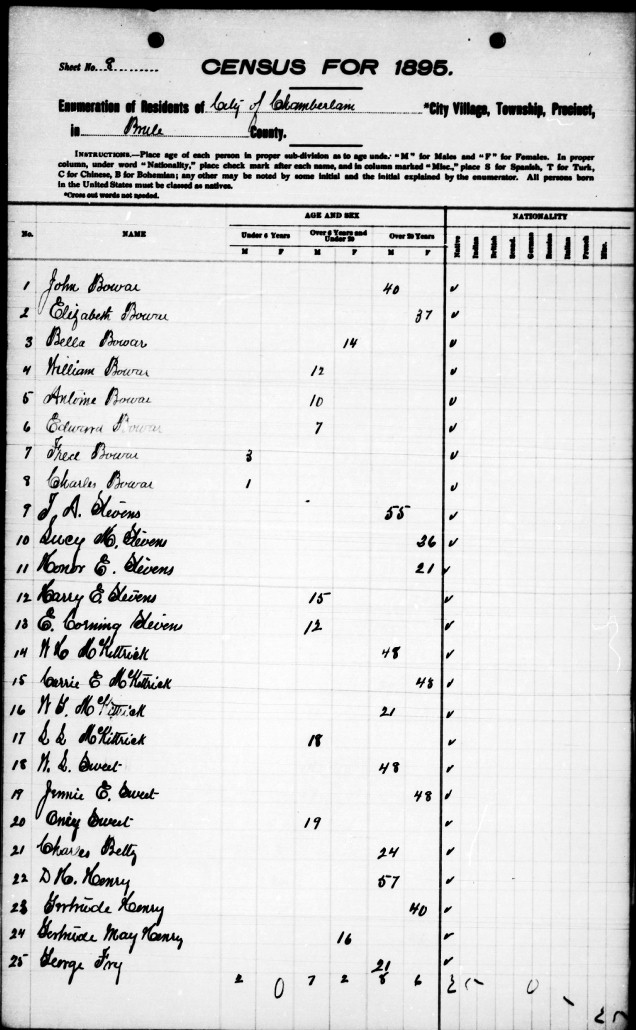 Sheet No. 8
CENSUS FOR 1895.
Enumeration of Residents of City of Chamberlain *City Village, Township, Precinct,
in Brule County.
INSTRUCTIONS.—Place age of each person in proper sub-division as to age under "M" for Males and "F" for Females. In proper
column, under word "Nationality," place check mark after each name, and in column marked "Misc.," place S for Spanish, T for Turk,
C for Chinese, B for Bohemian; any other may be noted by some initial and the initial explained by the enumerator. All persons born
in the United States must be classed as natives.
*Cross out words not needed.
AGE AND SEX NATIONALITY
No. NAME Under 6 Years Over 6 Years and Under 20 Over 20 Years Native Indian British Scand. German Russian Italian French Misc.
M F M F M F
1 John Bowar 40 ✓
2 Elizabeth Bowar 37 ✓
3 Bella Bowar 14 ✓
4 William Bowar 12 ✓
5 Antoine Bowar 10 ✓
6 Edward Bowar 7 ✓
7 Fred Bowar 3 ✓
8 Charles Bowar 1 ✓
9 T. A. Stevens 55 ✓
10 Lucy M. Stevens 36 ✓
11 Honor E. Stevens 21 ✓
12 Harry E. Stevens 15 ✓
13 E. Corning Stevens 12 ✓
14 W H McKittrick 48 ✓
15 Carrie E McKittrick 48 ✓
16 W T. McKittrick 21 ✓
17 L L McKittrick 18 ✓
18 W. L. Sweet 48 ✓
19 Jennie E. Sweet 48 ✓
20 Sweet 19 ✓
21 Charles Betty 24 ✓
22 D H. Henry 57 ✓
23 Gertrude Henry 40 ✓
24 Gertrude May Henry 16 ✓
25 George Fry 21 ✓
2 0 7 2 8 6 25 0
25